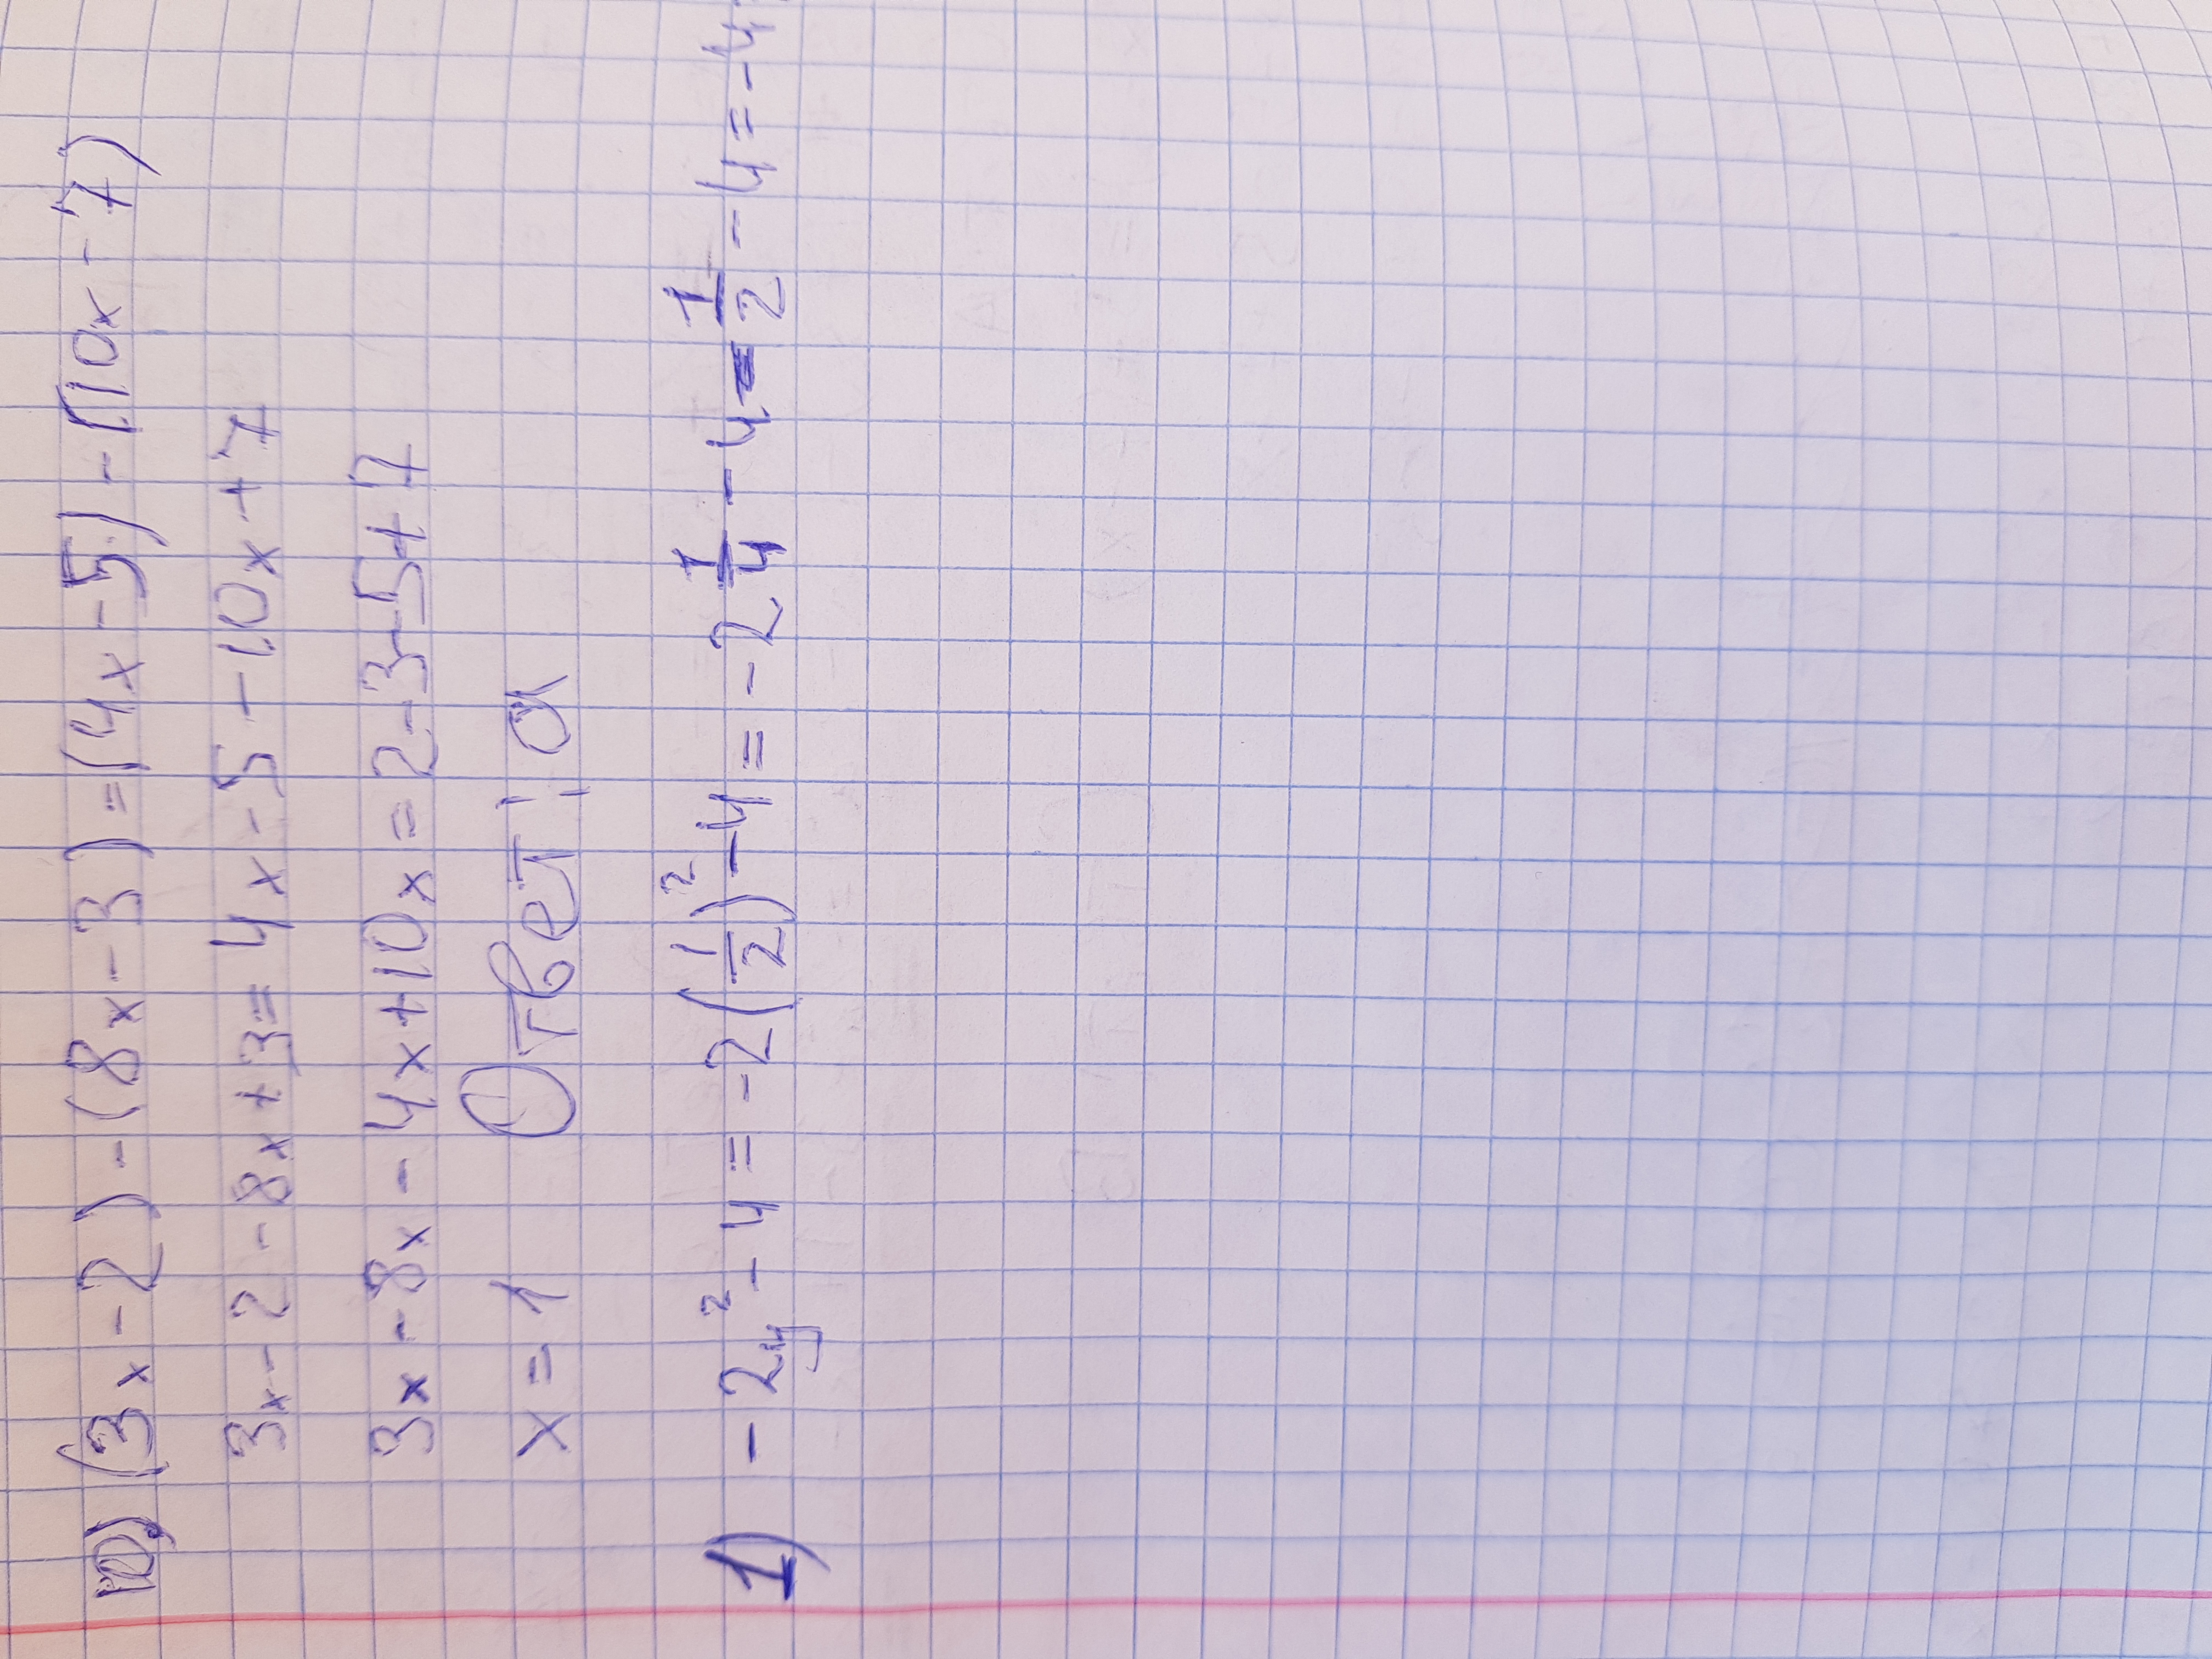 10) (3x - 2) - (8x - 3) = (4x - 5) - (10x - 7)
3x - 2 - 8x + 3 = 4x - 5 - 10x + 7
3x - 8x - 4x + 10x = 2 - 3 - 5 + 7
x = 1 Ответ: а
1) - 2y² - 4 = - 2(1/2)² - 4 = - 2 1/4 - 4 = 1/2 - 4 = - 4